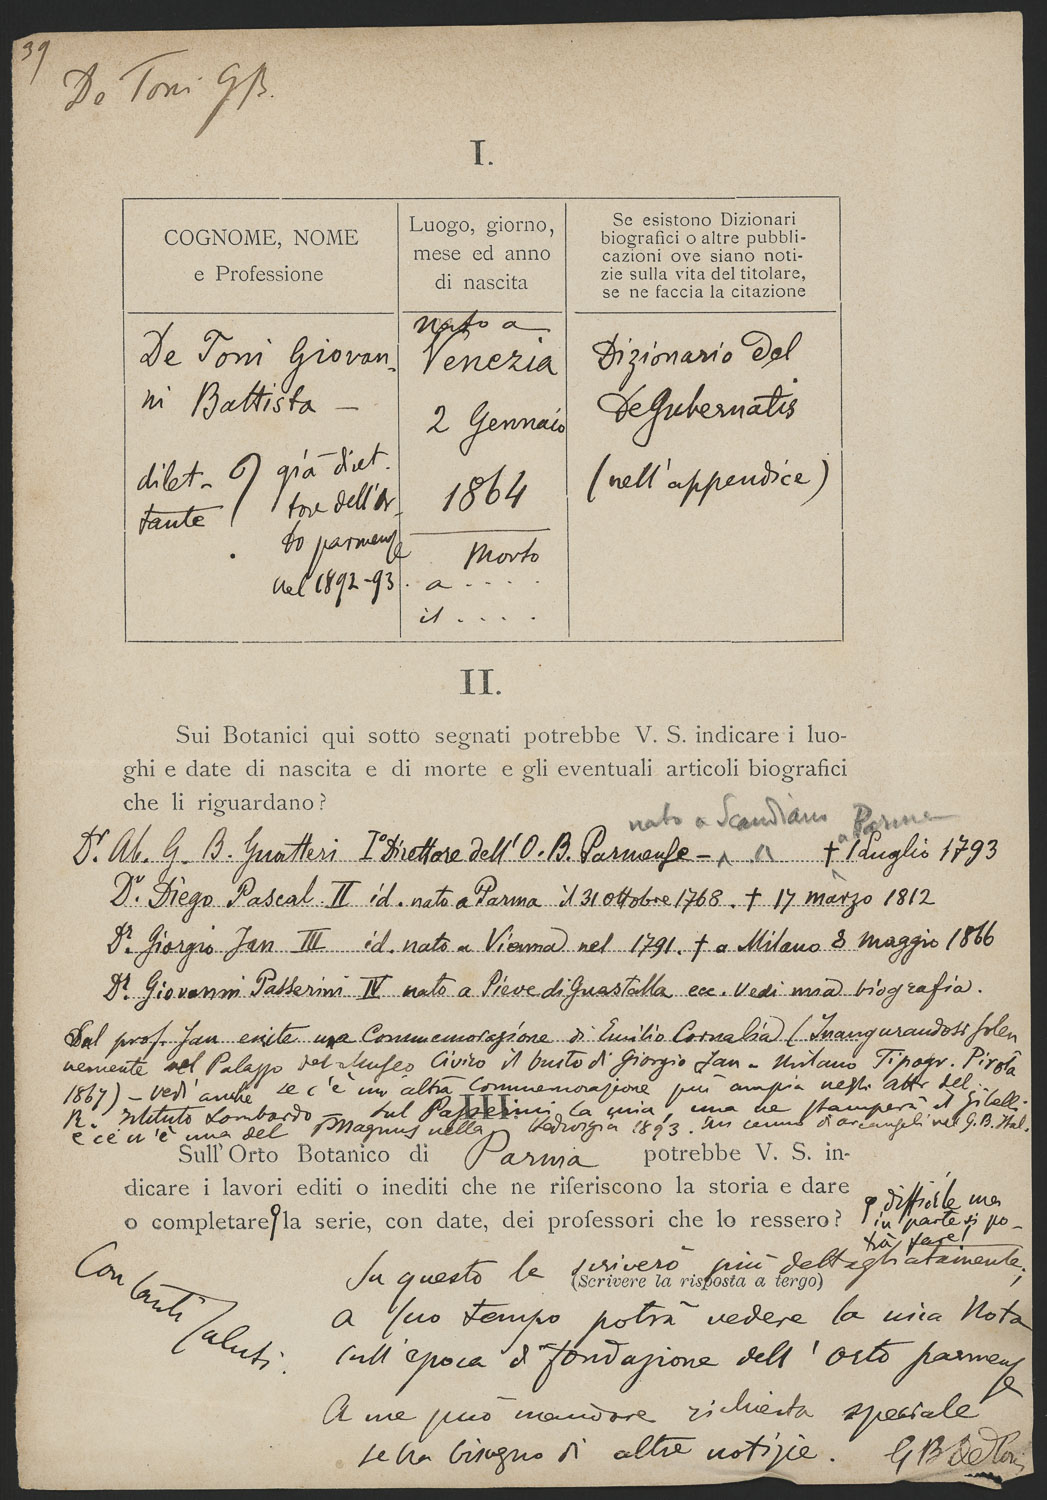 39
De Toni GB.
I.
COGNOME, NOME
e Professione
Luogo, giorno,
mese ed anno
di nascita
Se esistono Dizionari
biografici o altre pubbli-
cazioni ove siano noti-
zie sulla vita del titolare,
se ne faccia la citazione
De Toni Giovan-
ni Battista —
dilet-
tante
già diret-
tore dell'Or-
to parmense
nel 1892-93.
nato a
Venezia
2 Gennaio
1864
Morto
a . . . .
il . . . .
Dizionario del
DeGubernatis
(nell'appendice)
II.
Sui Botanici qui sotto segnati potrebbe V. S. indicare i luo-
ghi e date di nascita e di morte e gli eventuali articoli biografici
che li riguardano?
nato a Scandiano a Parma
Dr. Ab. G. B. Guatteri I° Direttore dell'O. B. Parmense — † 1 Luglio 1793
Dr. Diego Pascal II id. nato a Parma il 31 ottobre 1768. † 17 marzo 1812
Dr. Giorgio Jan III id. nato a Vienna nel 1791. † a Milano 8 maggio 1866
Dr. Giovanni Passerini IV nato a Pieve di Guastalla ecc. Vedi mia biografia.
Sul prof. Jan esiste una Commemorazione di Emilio Cornalia (Inaugurandosi solen
nemente nel Palazzo del Museo Civico il busto di Giorgio Jan - Milano Tipogr. Pirota
1867) — vedi anche se c'è un'altra Commemorazione più ampia negli atti del
R. Istituto Lombardo Sul Passerini la mia, una ne stamperà il Gibelli
e ce n'è una del Magnus nella Hedwigia 1893. un cenno di Arcangeli nel G. B. Ital.
III.
Sull'Orto Botanico di Parma potrebbe V. S. in-
dicare i lavori editi o inediti che ne riferiscono la storia e dare
o completare la serie, con date, dei professori che lo ressero?
difficile ma
in parte si po-
trà fare!
(Scrivere la risposta a tergo)
Su questo le scriverò più dettagliatamente;
a suo tempo potrà vedere la mia Nota
sull'epoca di fondazione dell'orto parmense
A me può mandare richiesta speciale
se ha bisogno di altre notizie. G B De Toni
Con tanti
saluti.